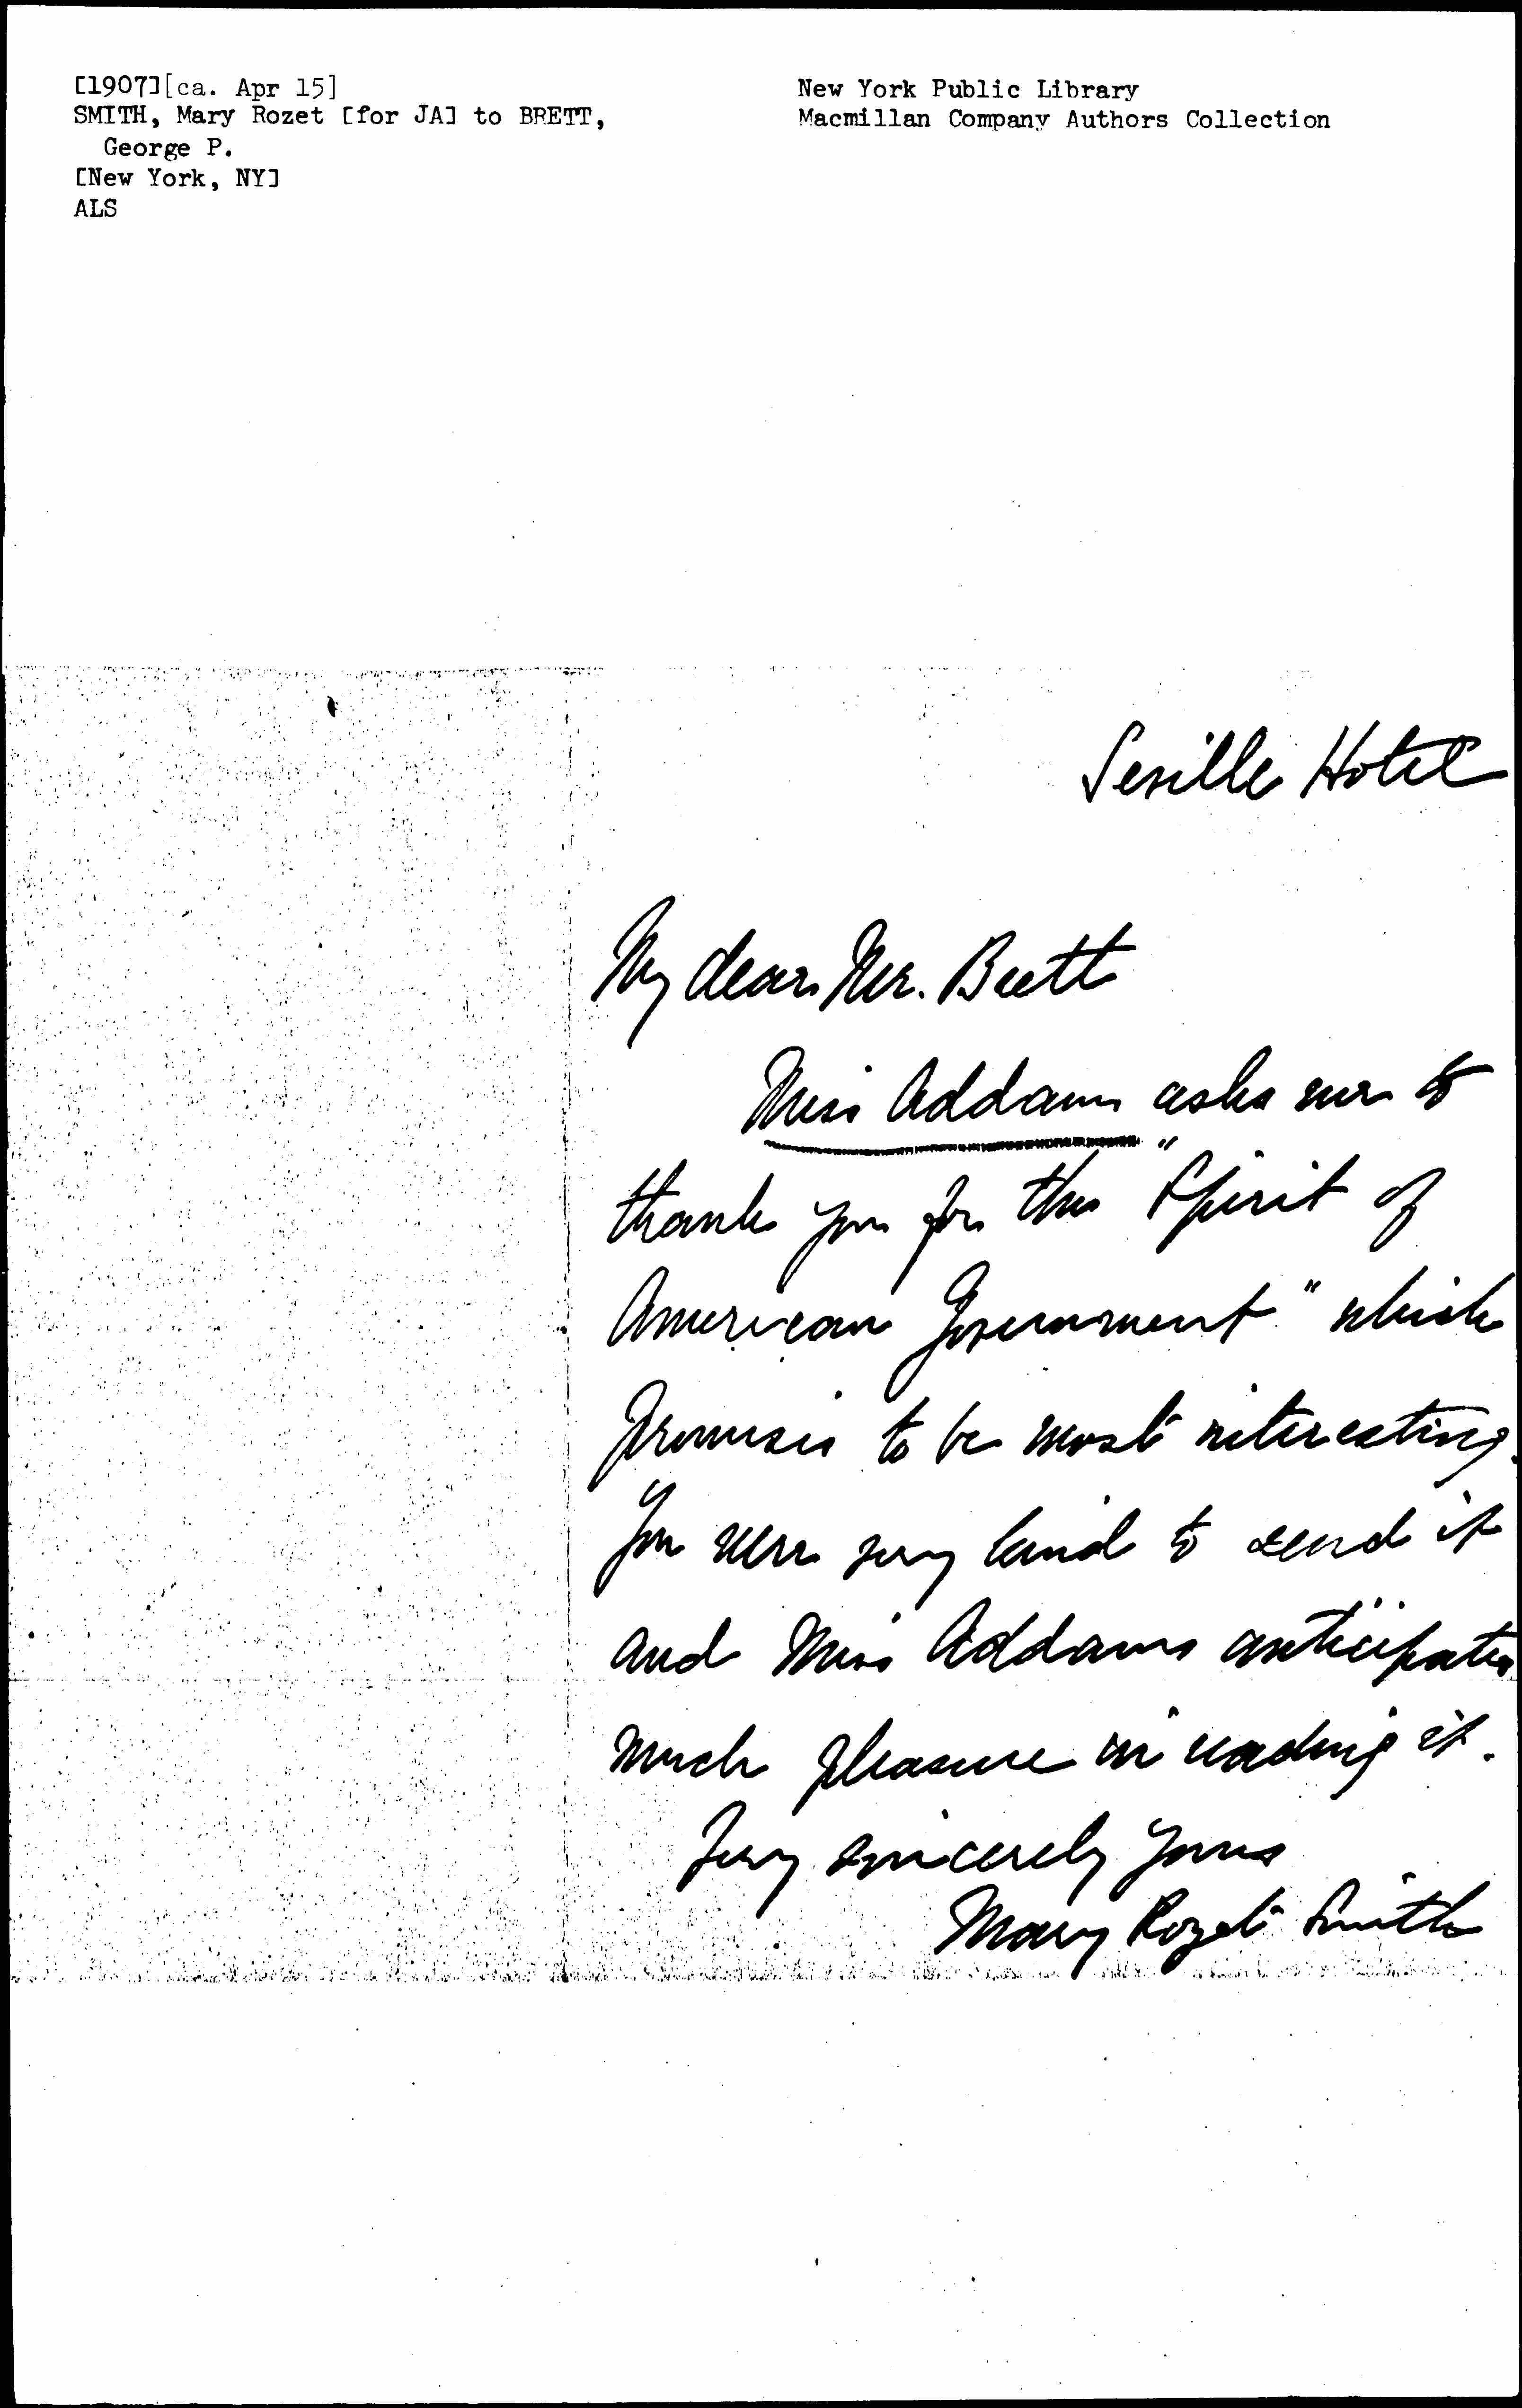 [1907][ca. Apr 15]
SMITH, Mary Rozet [for JA] to BRETT,
George P.
[New York, NY]
ALS
New York Public Library
Macmillan Company Authors Collection
Seville Hotel
My dear Mr. Brett
Miss Addams asks me to
thank you for the "Spirit of
American Government" which
promises to be most interesting.
You were very kind to send it
and Miss Addams anticipates
much pleasure in reading it.
Very sincerely yours
Mary Rozet Smith